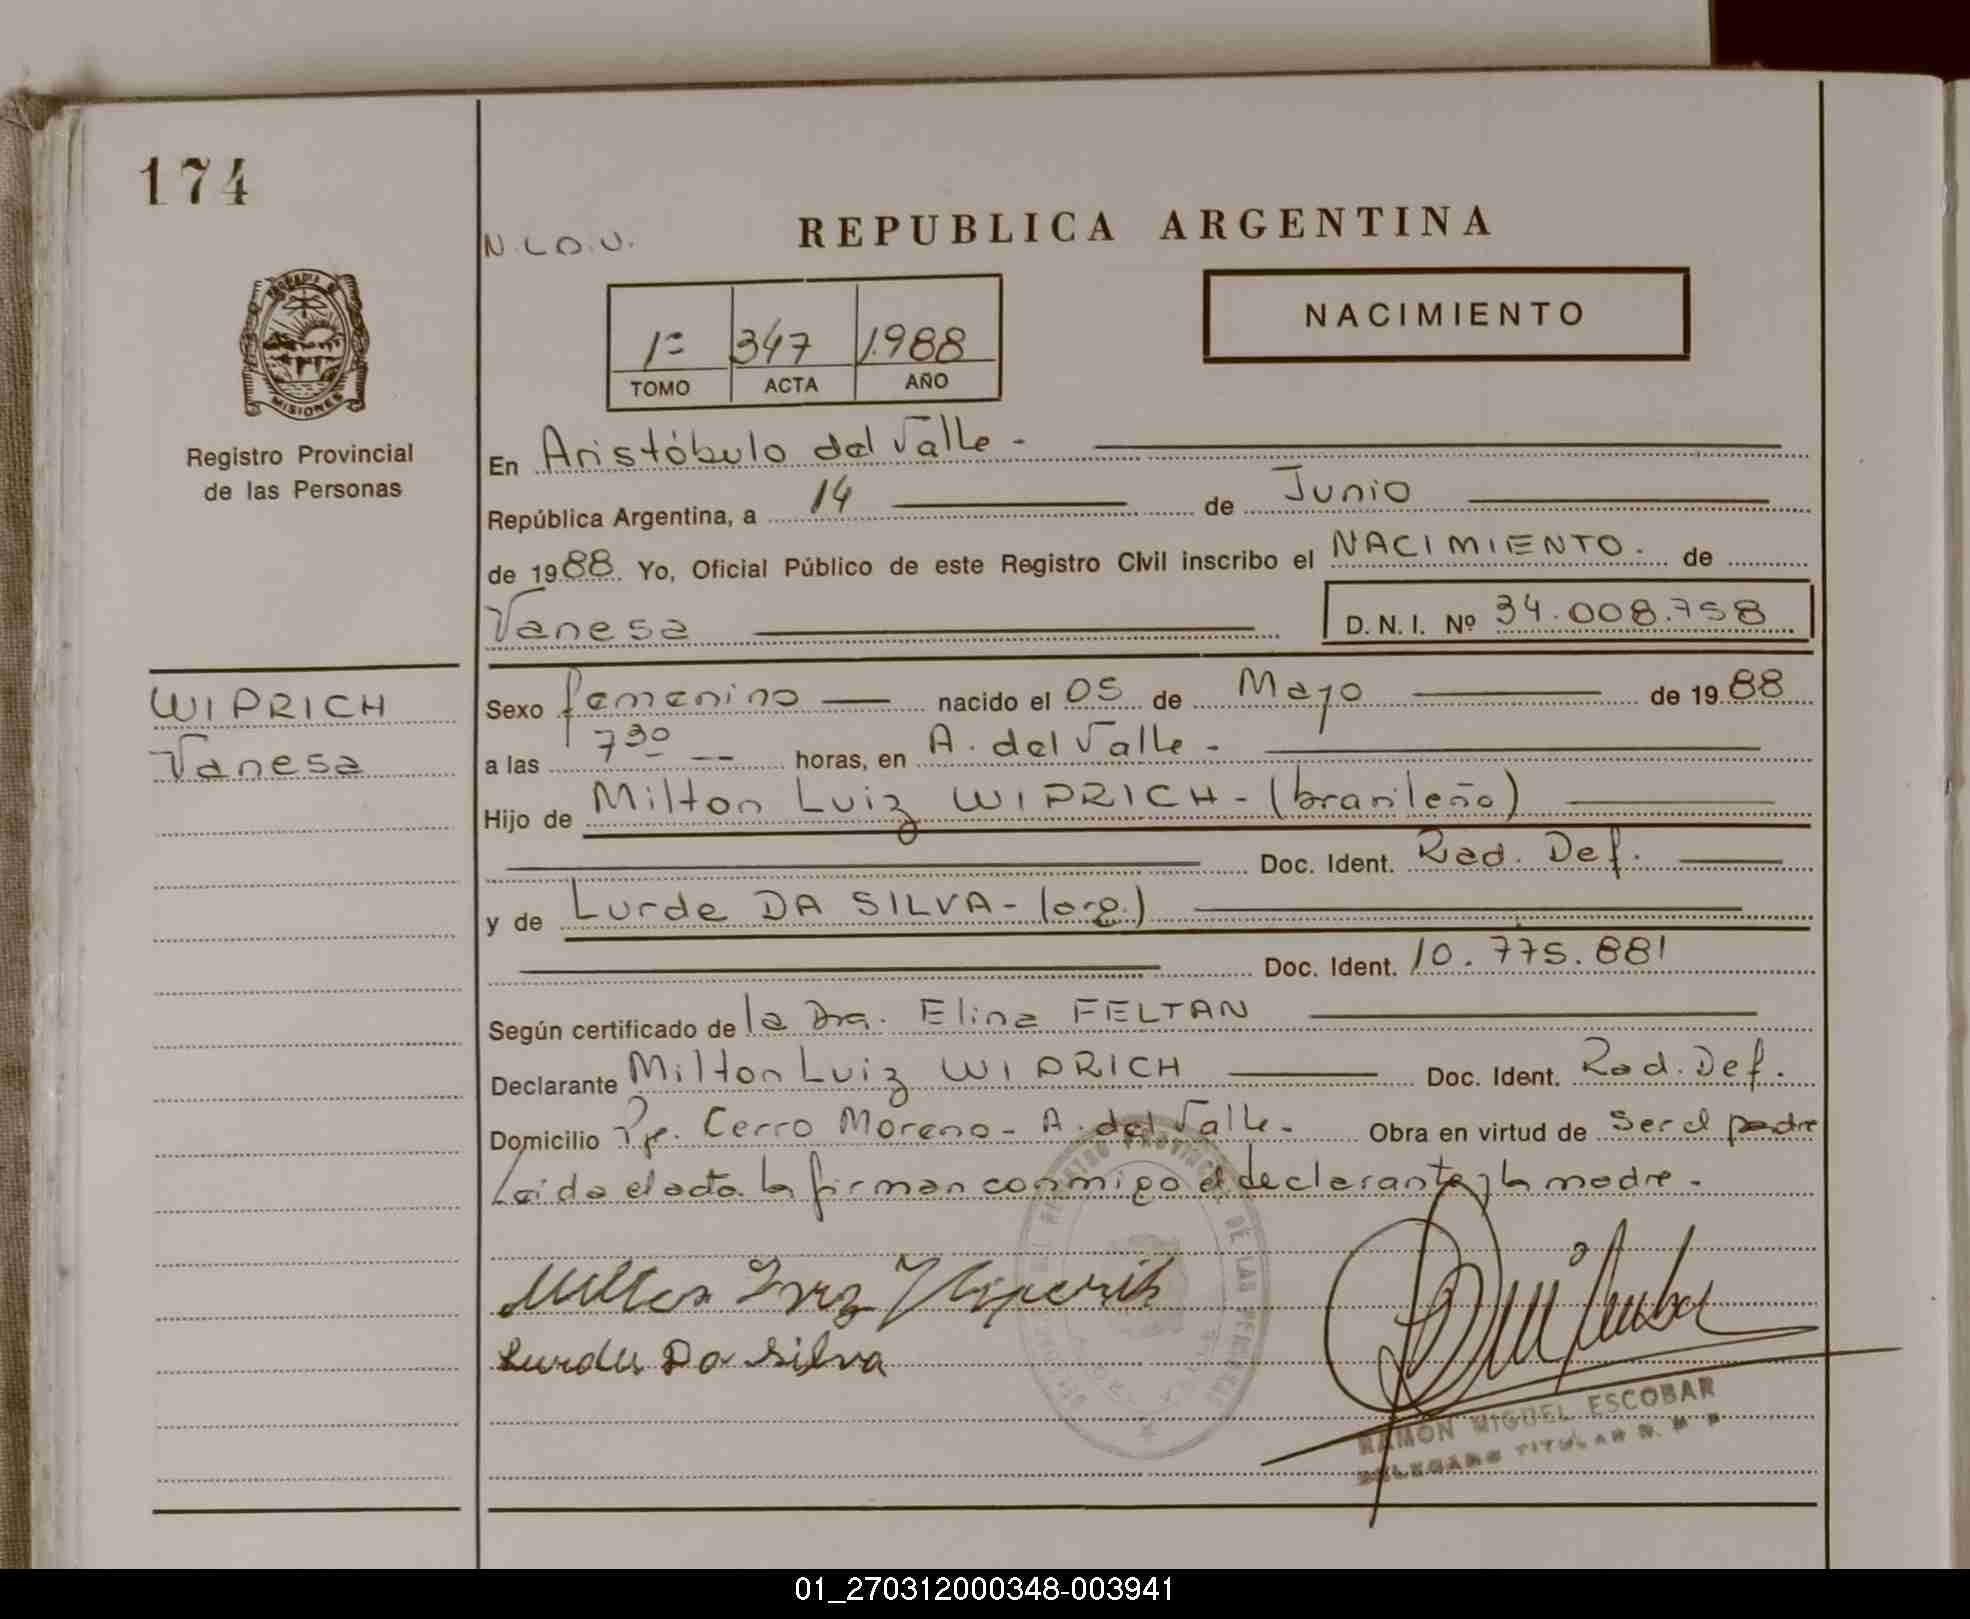 174
N.L.O.U.
REPUBLICA ARGENTINA
NACIMIENTO
1º 347 1.988
TOMO ACTA AÑO
MISIONES
Registro Provincial
de las Personas
En Aristóbulo del Valle -
República Argentina, a 14 de Junio
de 1988. Yo, Oficial Público de este Registro Civil inscribo el NACIMIENTO. de
Vanesa D. N. I. Nº 34.008.758
WIPRICH
Vanesa
Sexo femenino nacido el 05 de Mayo de 1988
a las 7 30 -- horas, en A. del Valle -
Hijo de Milton Luiz WIPRICH - (brasileño)
Doc. Ident. Rad. Def.
y de Lurde DA SILVA - (arg.)
Doc. Ident. 10.775.881
Según certificado de la Dra. Elina FELTAN
Declarante Milton Luiz WIPRICH Doc. Ident. Rad. Def.
Domicilio Pje. Cerro Moreno - A. del Valle - Obra en virtud de ser el padre
Leida el acta la firman conmigo el declarante y la madre -
Lurdes Da Silva
RAMON MIGUEL ESCOBAR
DELEGADO TITULAR
01_270312000348-003941